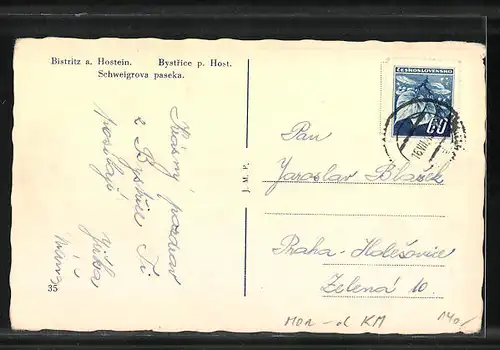 Bistritz a. Hostein. Bystřice p. Host.
Schweigrova paseka.
ČESKOSLOVENSKO
60
Krásný pozdrav
z Bystřice Ti
posílají Jiřka
J. M. P.
Pan
Jaroslav Blažek
Praha-Holešovice
Zelená 10.
35
MOR KM
140/